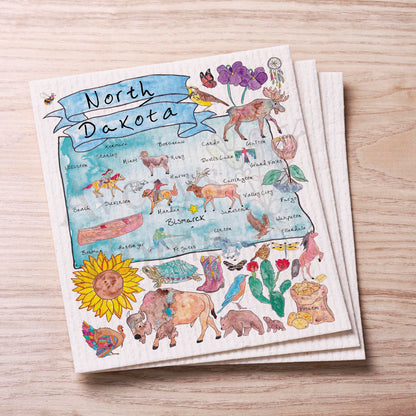 North
Dakota
Kenmare
Bottineau
Cando
Grafton
Williston
Stanley
Minot
Rugby
Devils Lake
Grand Forks
Harvey
Carrington
Beach
Dickinson
Mandan
Jamestown
Valley City
Fargo
Bismarck
Wahpeton
Linton
Ellendale
Bowman
Hettinger
Ft Yates